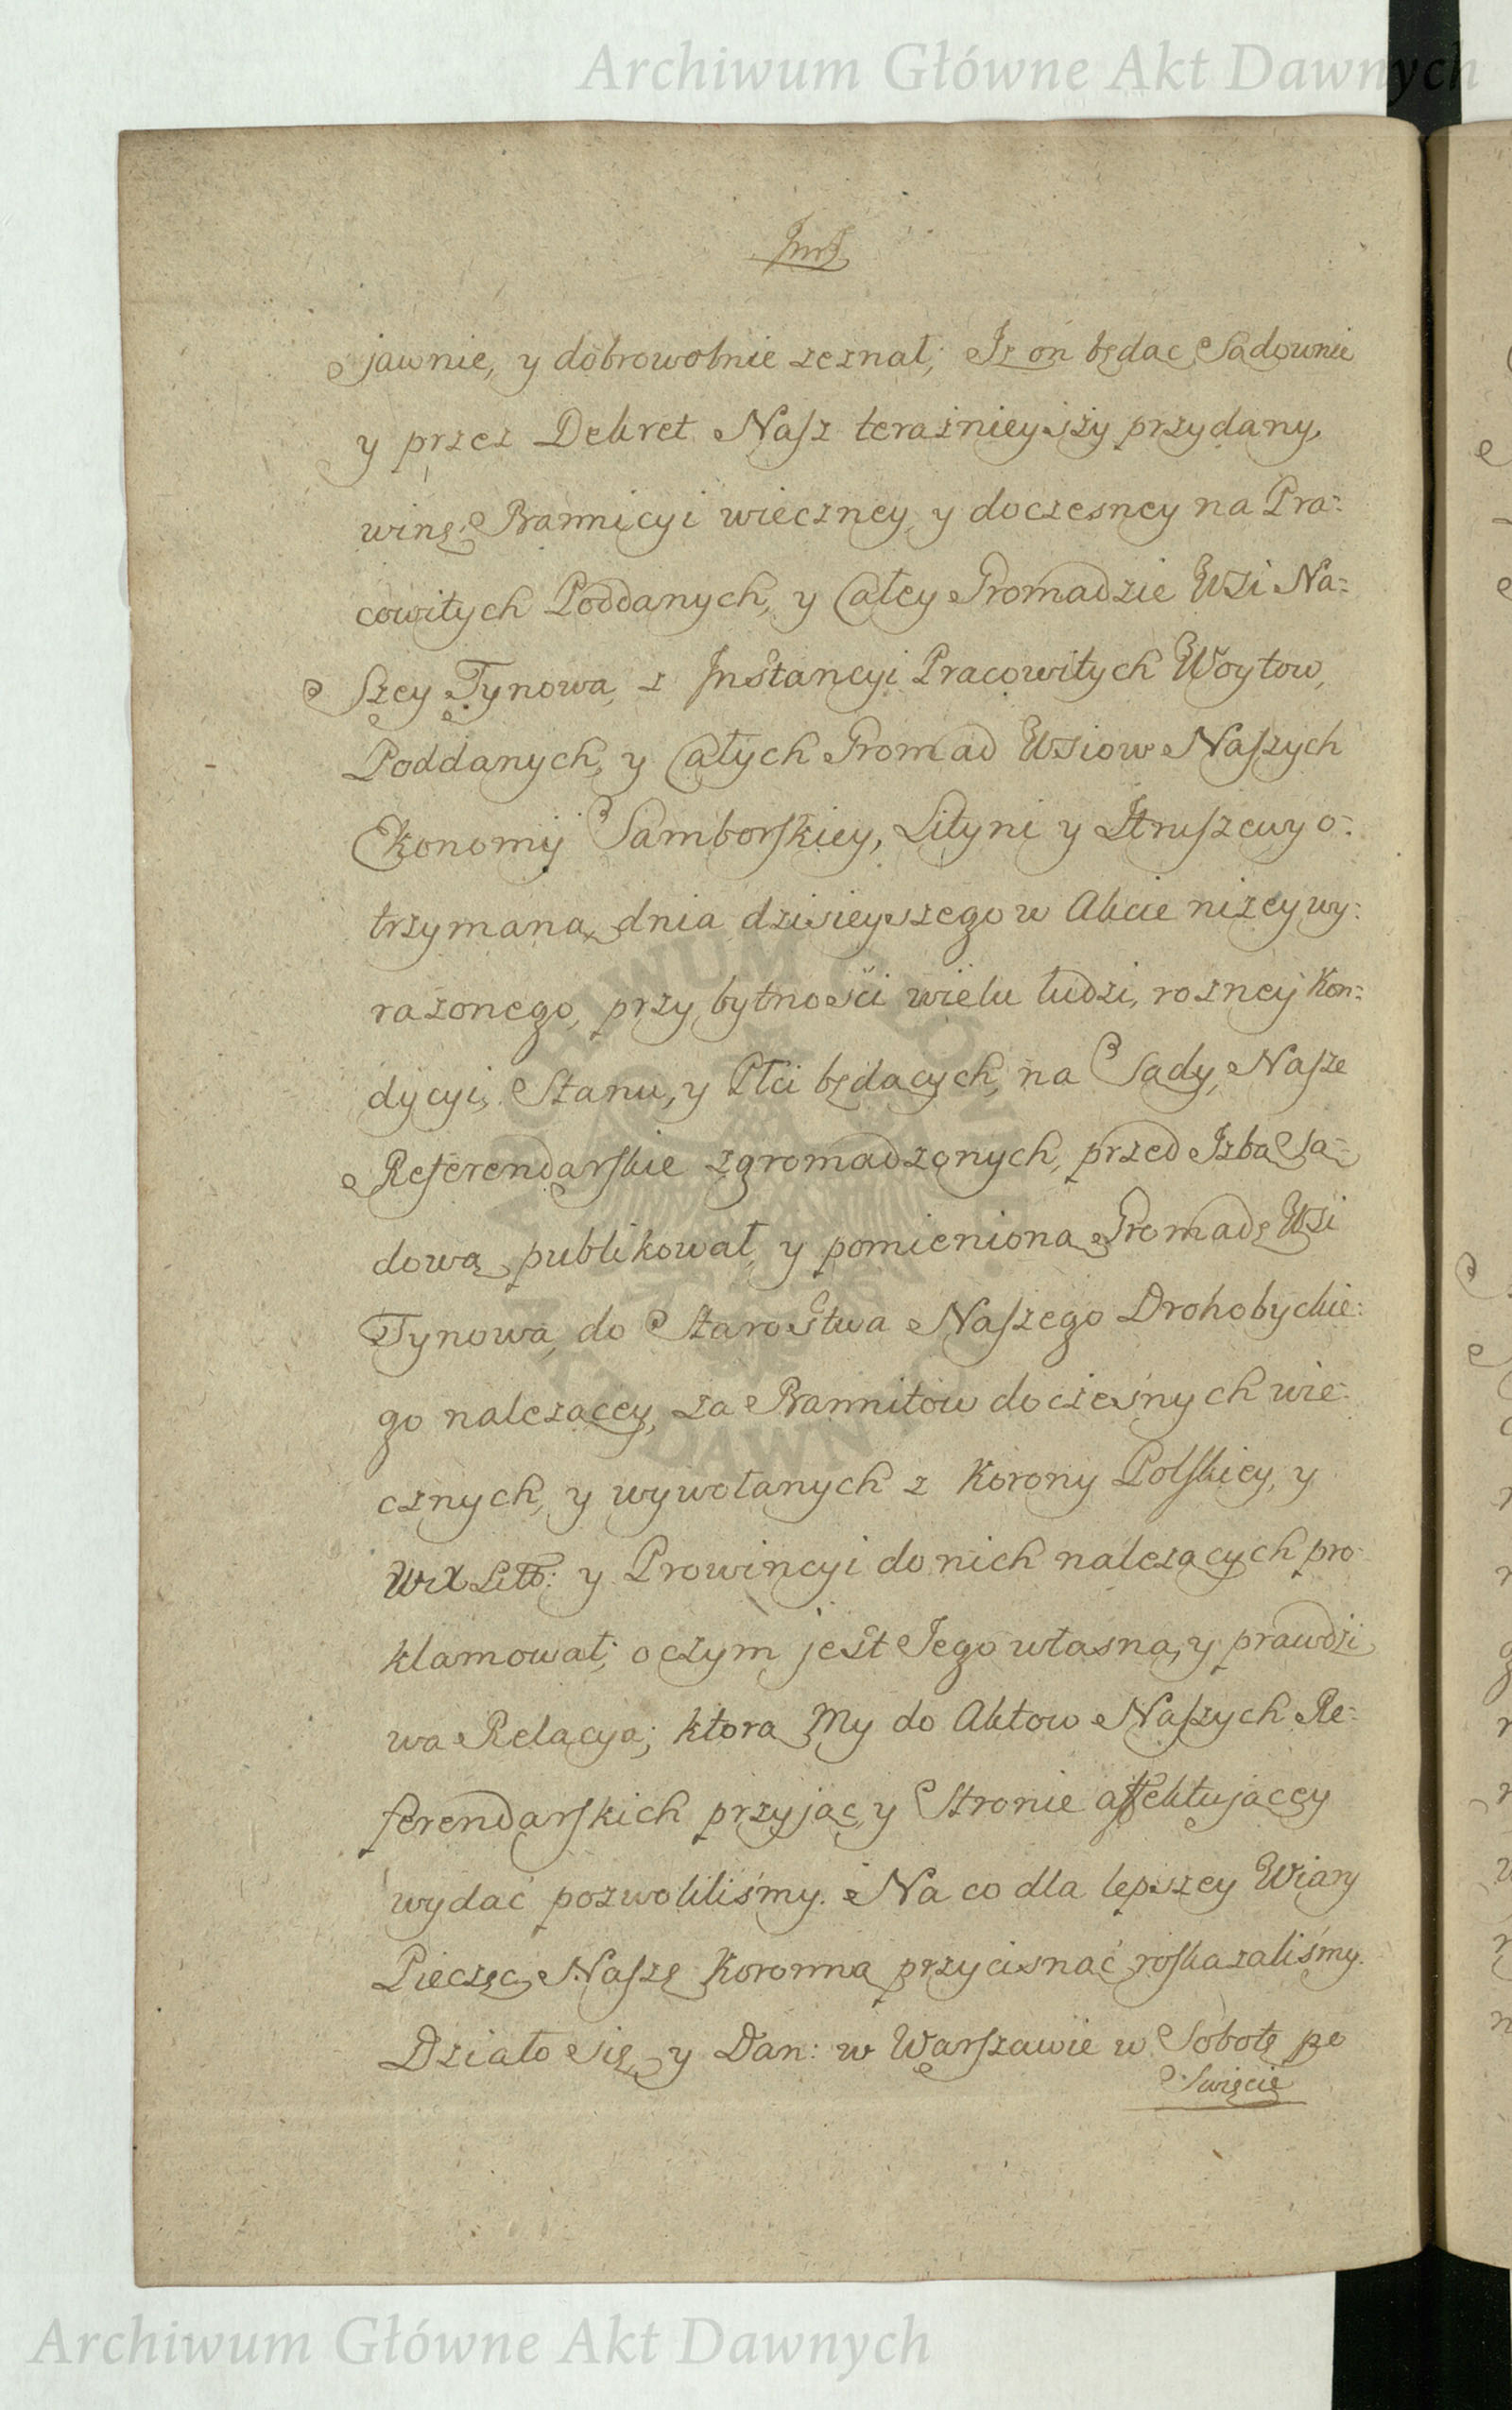 Archiwum Główne Akt Dawnych
jawnie, y dobrowolnie zeznał; Iż on będąc Sądownie
y przez Dekret Nasz teraźnieyszy przydany,
winę Bannicyi wieczney y doczesney na Pra=
cowitych Poddanych, y Całey Gromadzie Wsi Na=
Szey Tynowa, z Instancyi Pracowitych Woytow,
Poddanych, y Całych Gromad Wsiow Naszych
Ekonomij Samborskiey, Lityni y Hruszewy o=
trzymaną, dnia dzisieyszego w Akcie niżey wy=
rażonego, przy bytności wielu ludzi, rożney Kon=
dycyi, Stanu, y Płci będących, na Sądy Nasze
Referendarskie zgromadzonych, przed Izbą Są=
dową publikował, y pomienioną Gromadę Wsi
Tynowa, do Starostwa Naszego Drohobyckie=
go należącey, za Bannitow doczesnych wie=
cznych, y wywołanych z Korony Polskiey, y
WXLitt: y Prowincyi do nich należących pro=
klamował; o czym jest Jego własna, y prawdzi
wa Relacya; ktorą My do Aktow Naszych Re=
ferendarskich przyjąc, y Stronie affektującey
wydać pozwoliliśmy. Na co dla lepszey Wiary
Pieczęć Naszę Koronną przycisnąć roskazaliśmy.
Działo się y Dan: w Warszawie w Sobotę po
Swięcie
ARCHIWUM GŁÓWNE AKT DAWNYCH
Archiwum Główne Akt Dawnych